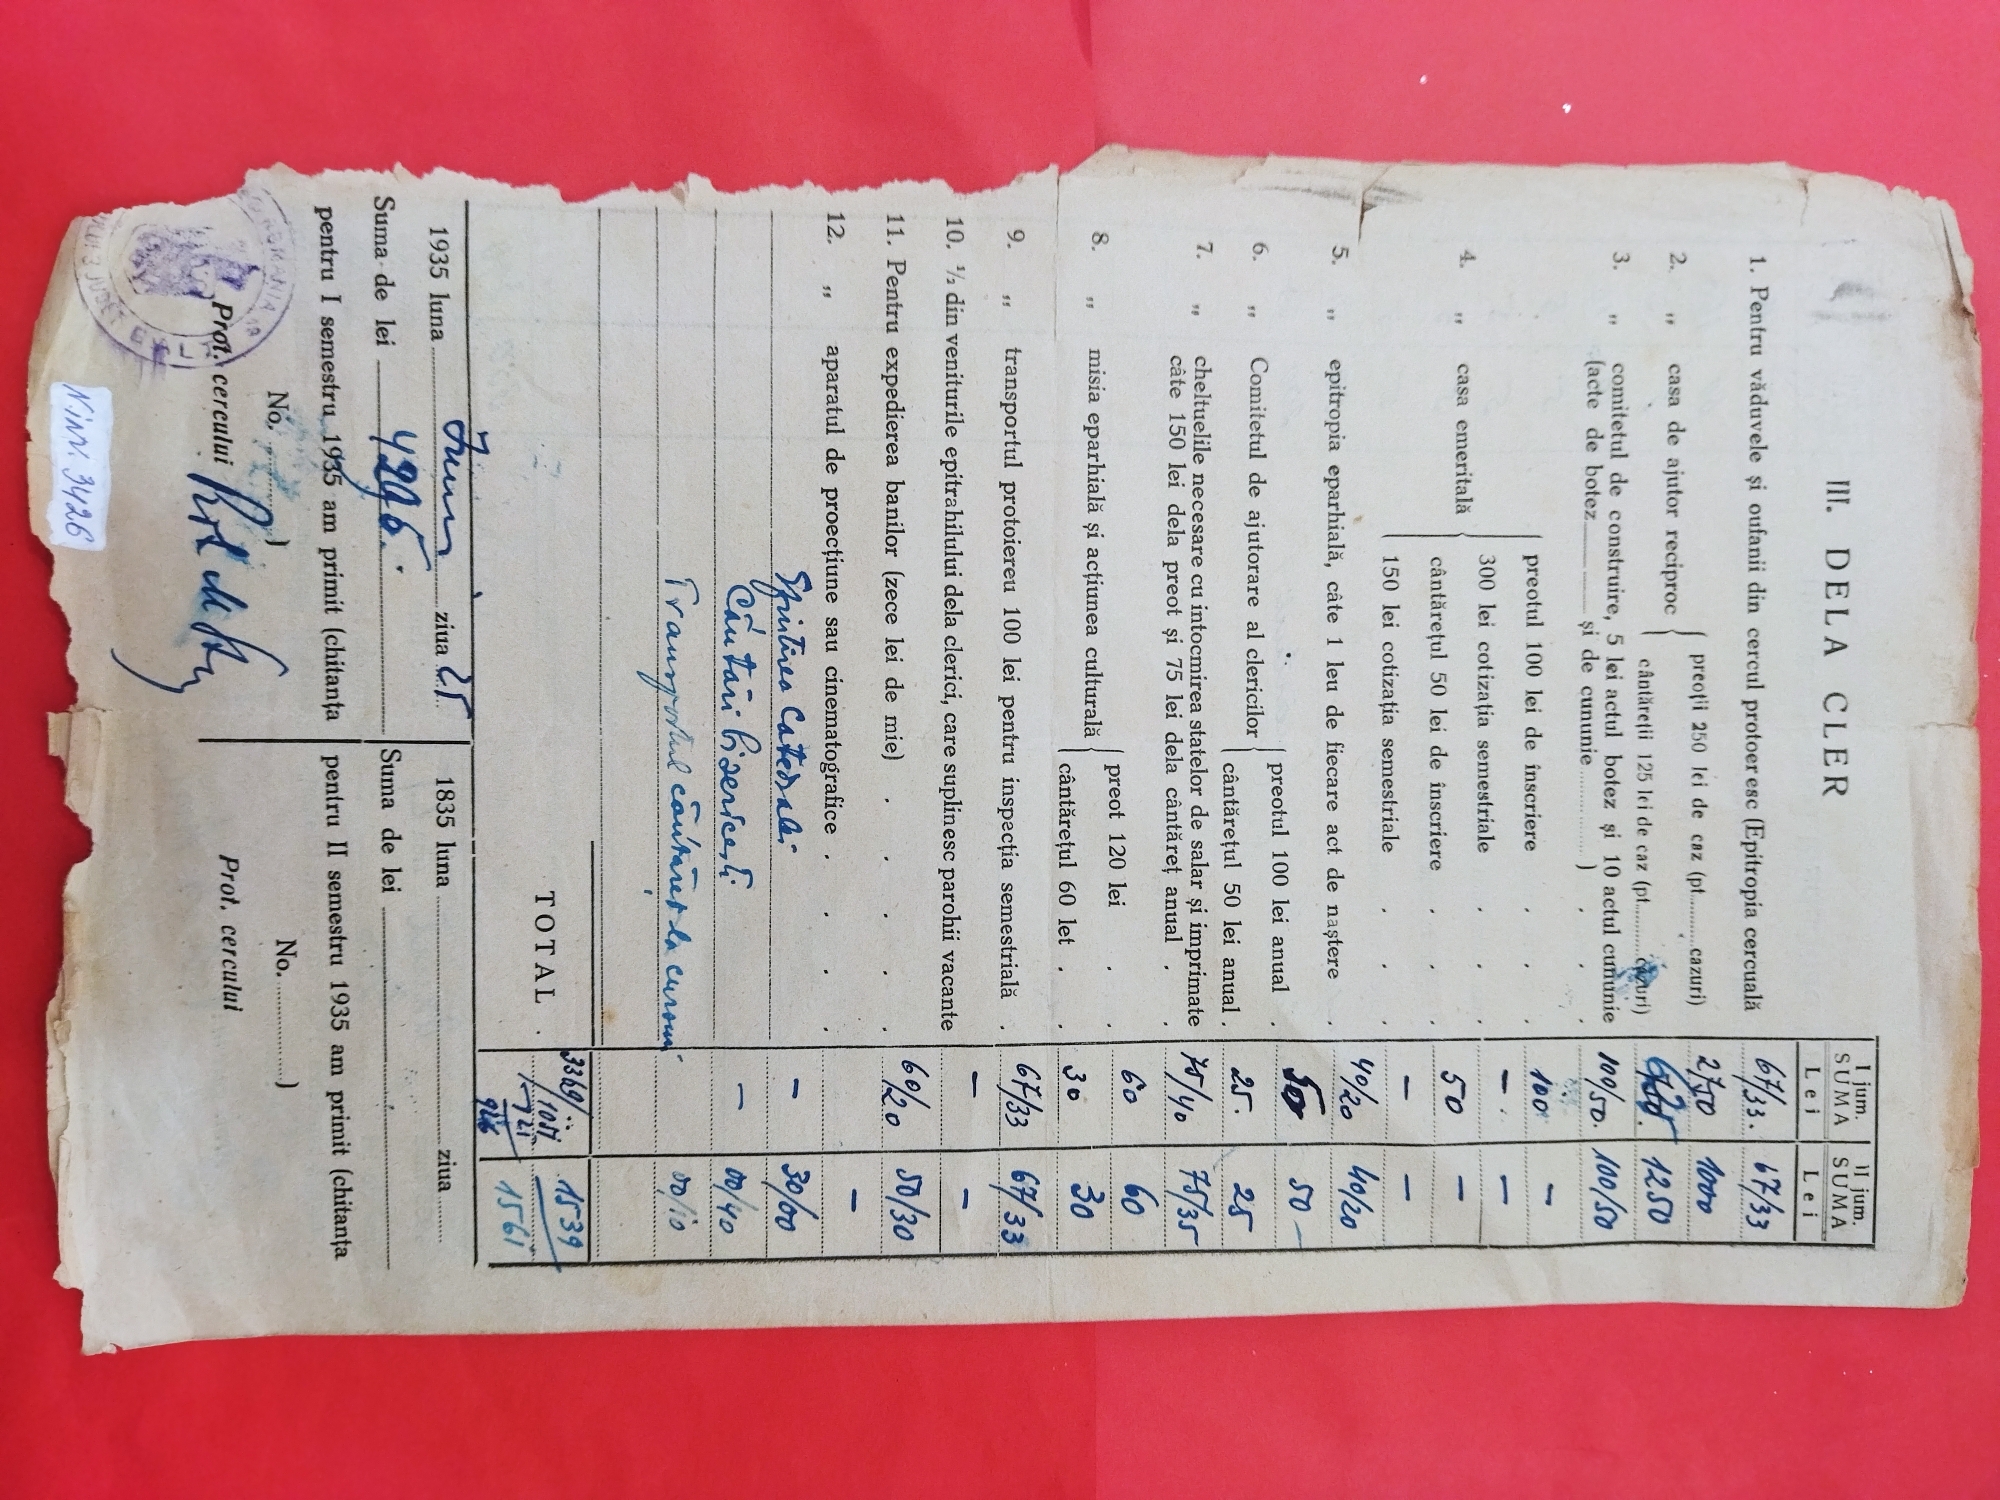 III. DELA CLER
I jum. II jum.
SUMA SUMA
Lei Lei
1. Pentru văduvele și oufanii din cercul protoeresc (Epitropia cercuală 67/33. 67/33
2. „ casa de ajutor reciproc { preoții 250 lei de caz (pt.........cazuri) 2750 1000
cântăreții 125 lei de caz (pt.........cazuri) 1250
3. „ comitetul de construire, 5 lei actul botez și 10 actul cununie
(acte de botez................ și de cununie ................) . . 100/50. 100/50
preotul 100 lei de înscriere . . 100 –
4. „ casa emeritală { 300 lei cotizația semestriale . . – –
cântărețul 50 lei de înscriere . . 50 –
150 lei cotizația semestriale . . – –
5. „ epitropia eparhială, câte 1 leu de fiecare act de naștere . 40/20 40/20
6. „ Comitetul de ajutorare al clericilor { preotul 100 lei anual . 50 50 –
cântărețul 50 lei anual . 25. 25
7. „ cheltuelile necesare cu intocmirea statelor de salar și imprimate
câte 150 lei dela preot și 75 lei dela cântăreț anual . . 75/40 75/35
8. „ misia eparhială și acțiunea culturală { preot 120 lei . . 60 60
cântărețul 60 let . . 30 30
9. „ transportul protoiereu 100 lei pentru inspecția semestrială . 67/33 67/33
10. ½ din veniturile epitrahilului dela clerici, care suplinesc parohii vacante – –
11. Pentru expedierea banilor (zece lei de mie) . . . . . 60/20 50/30
12. „ aparatul de proecțiune sau cinematografice . . . . –
Sfintirea Catedralei – 30/00
Cântări bisericesti – 00/40
Transportul cântăreț la cursuri 00/10
TOTAL . 3369/1087 1539
1561
1935 luna Iunie ziua 25 1835 luna ................ ziua ........
Suma de lei 4296. Suma de lei ................
pentru I semestru 1935 am primit (chitanța pentru II semestru 1935 am primit (chitanța
No. ............) No. ............)
Prot. cercului Prot. cercului
ROMANIA
N inv. 3426